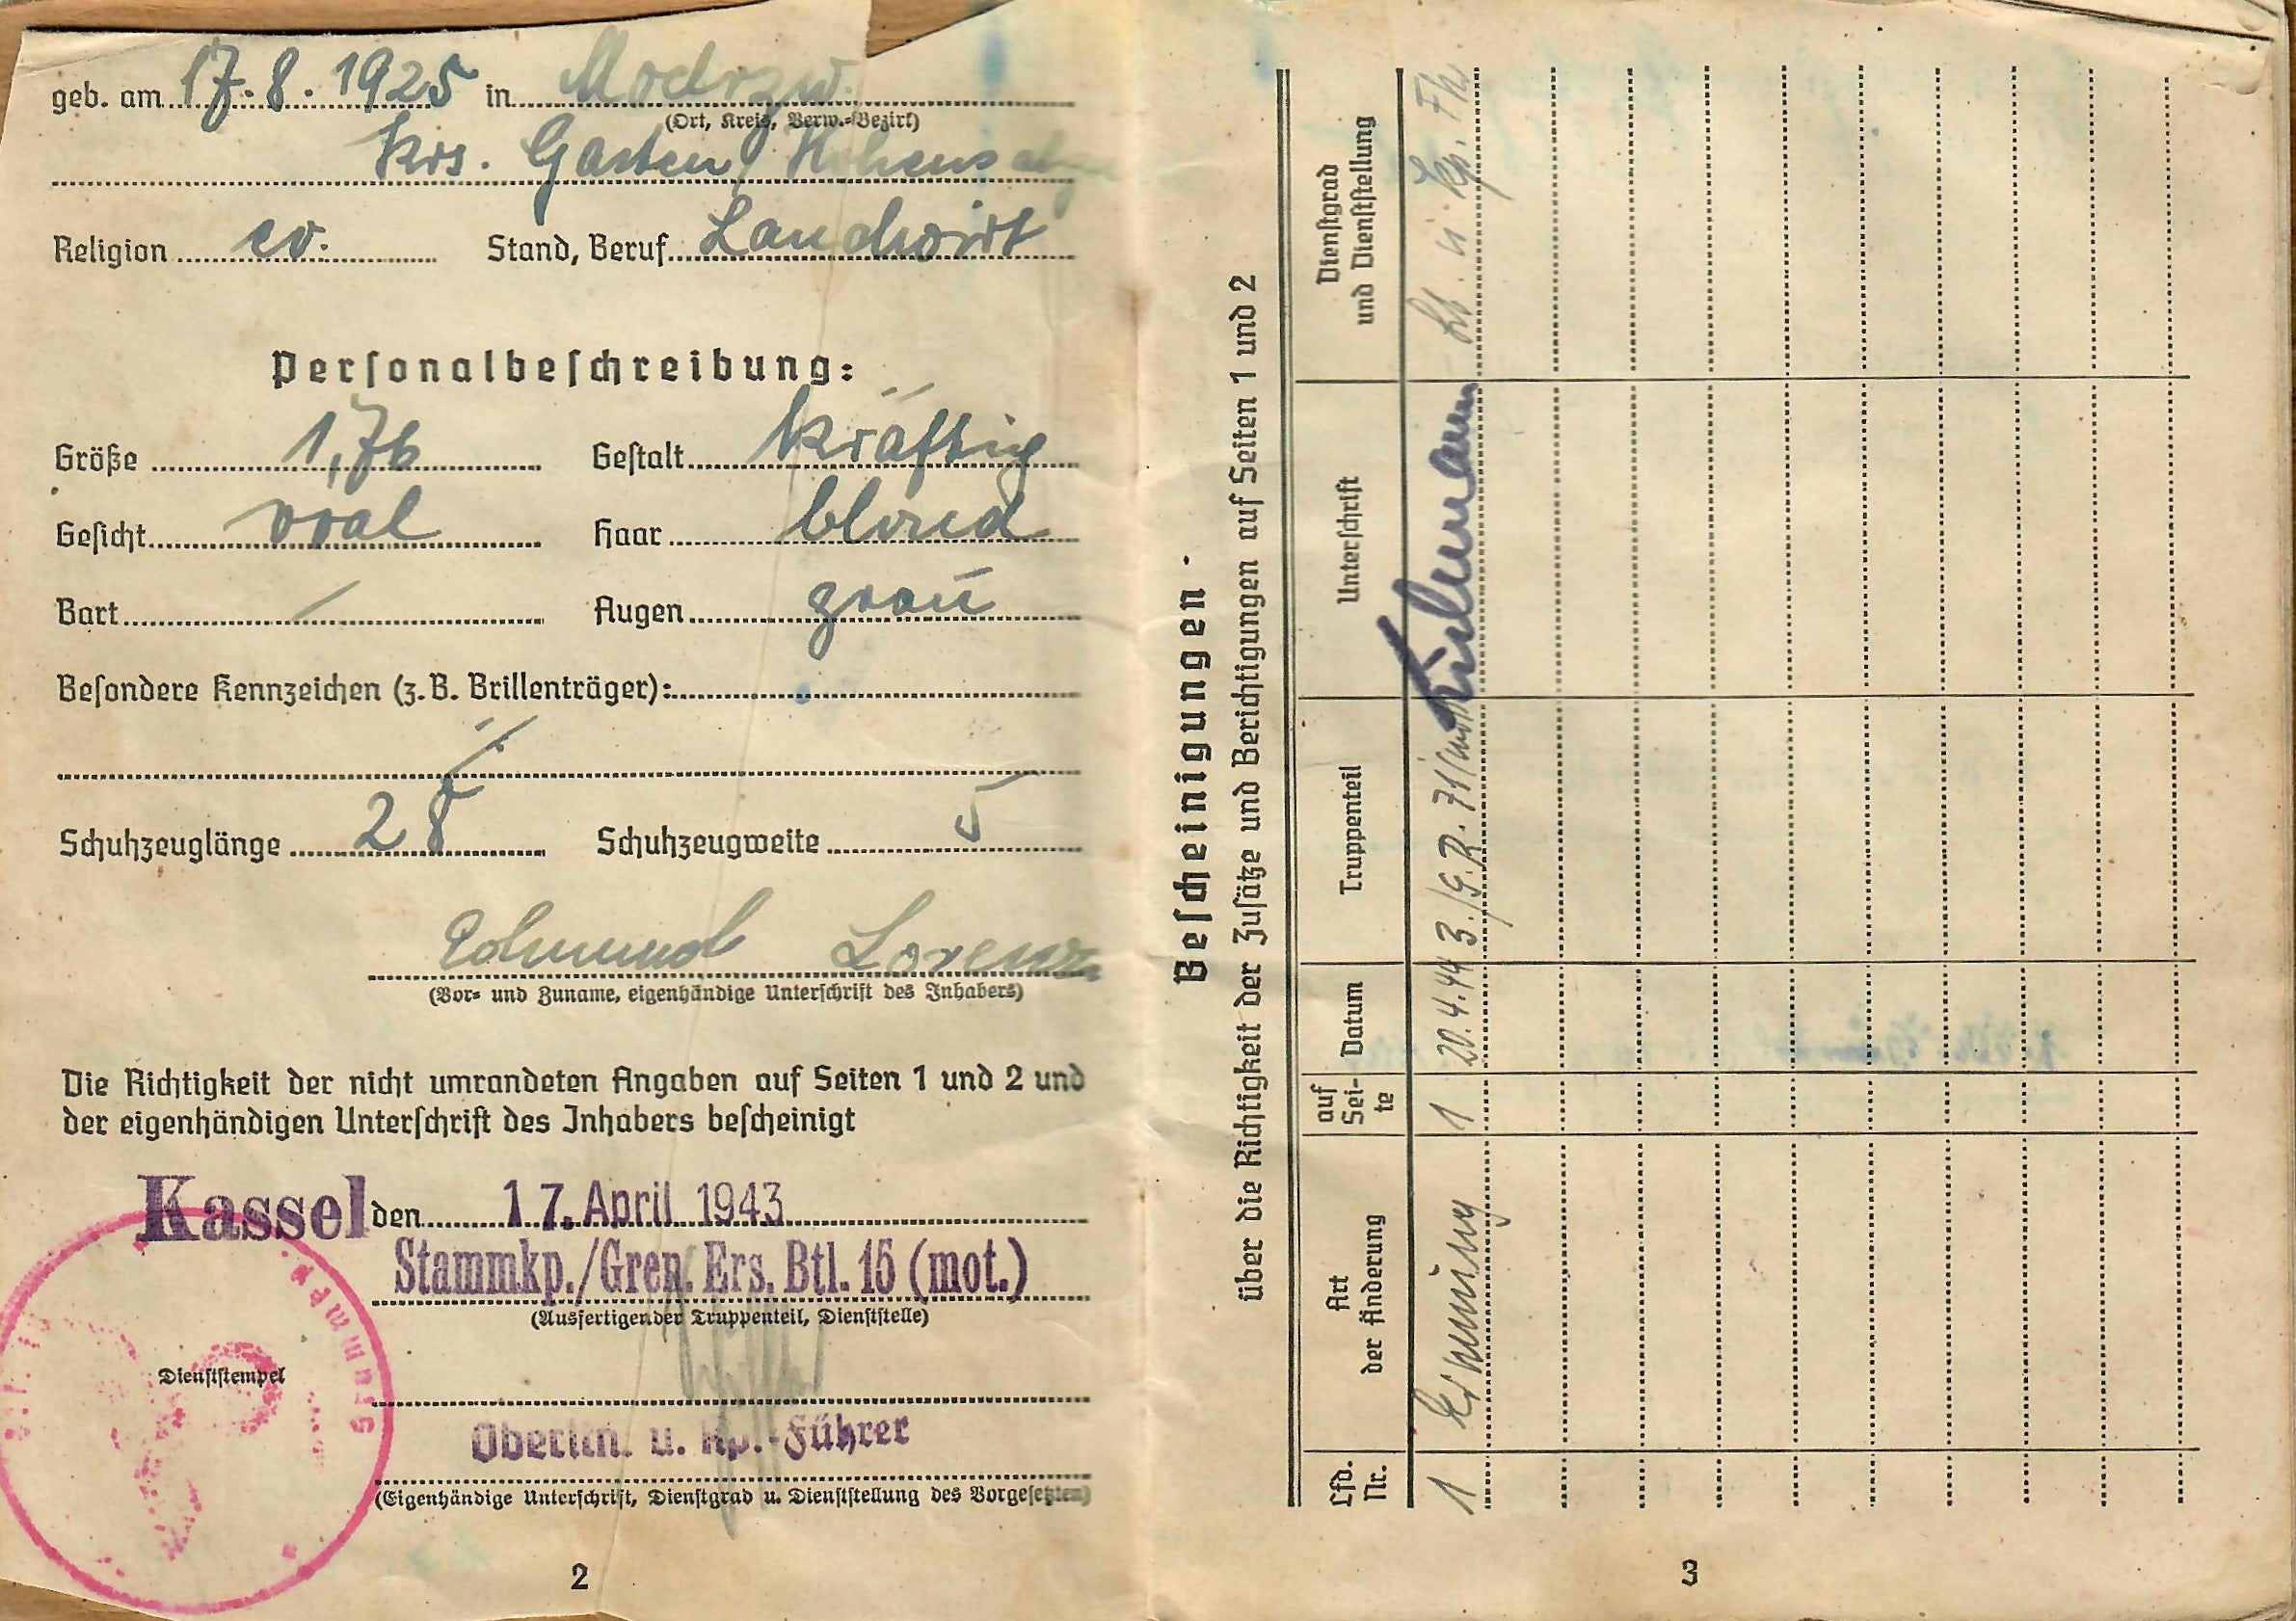 geb. am 17.8.1925 in Modrzw.
(Ort, Kreis, Verw.-Bezirk)
Krs. Gasten / Hohensal
Religion ev. Stand, Beruf Landwirt
Personalbeschreibung:
Größe 1,76 Gestalt kräftig
Gesicht oval Haar blond
Bart / Augen grau
Besondere Kennzeichen (z. B. Brillenträger):
·/·
Schuhzeuglänge 28 Schuhzeugweite 5
Edmund Lorenz
(Vor- und Zuname, eigenhändige Unterschrift des Inhabers)
Die Richtigkeit der nicht umrandeten Angaben auf Seiten 1 und 2 und
der eigenhändigen Unterschrift des Inhabers bescheinigt
Kassel den 17. April 1943
Stammkp./Gren. Ers. Btl. 15 (mot.)
(Ausfertigender Truppenteil, Dienststelle)
Dienststempel
Oberltn. u. Kp.-Führer
(Eigenhändige Unterschrift, Dienstgrad u. Dienststellung des Vorgesetzten)
2
Bescheinigungen
über die Richtigkeit der Zusätze und Berichtigungen auf Seiten 1 und 2
Lfd. Nr. Art der Änderung auf Sei-te Datum Truppenteil Unterschrift Dienstgrad und Dienststellung
1 Ernennung 1 20.4.44 3./G.R. 71 (mot) Lt. u. Kp. Fhr.
3